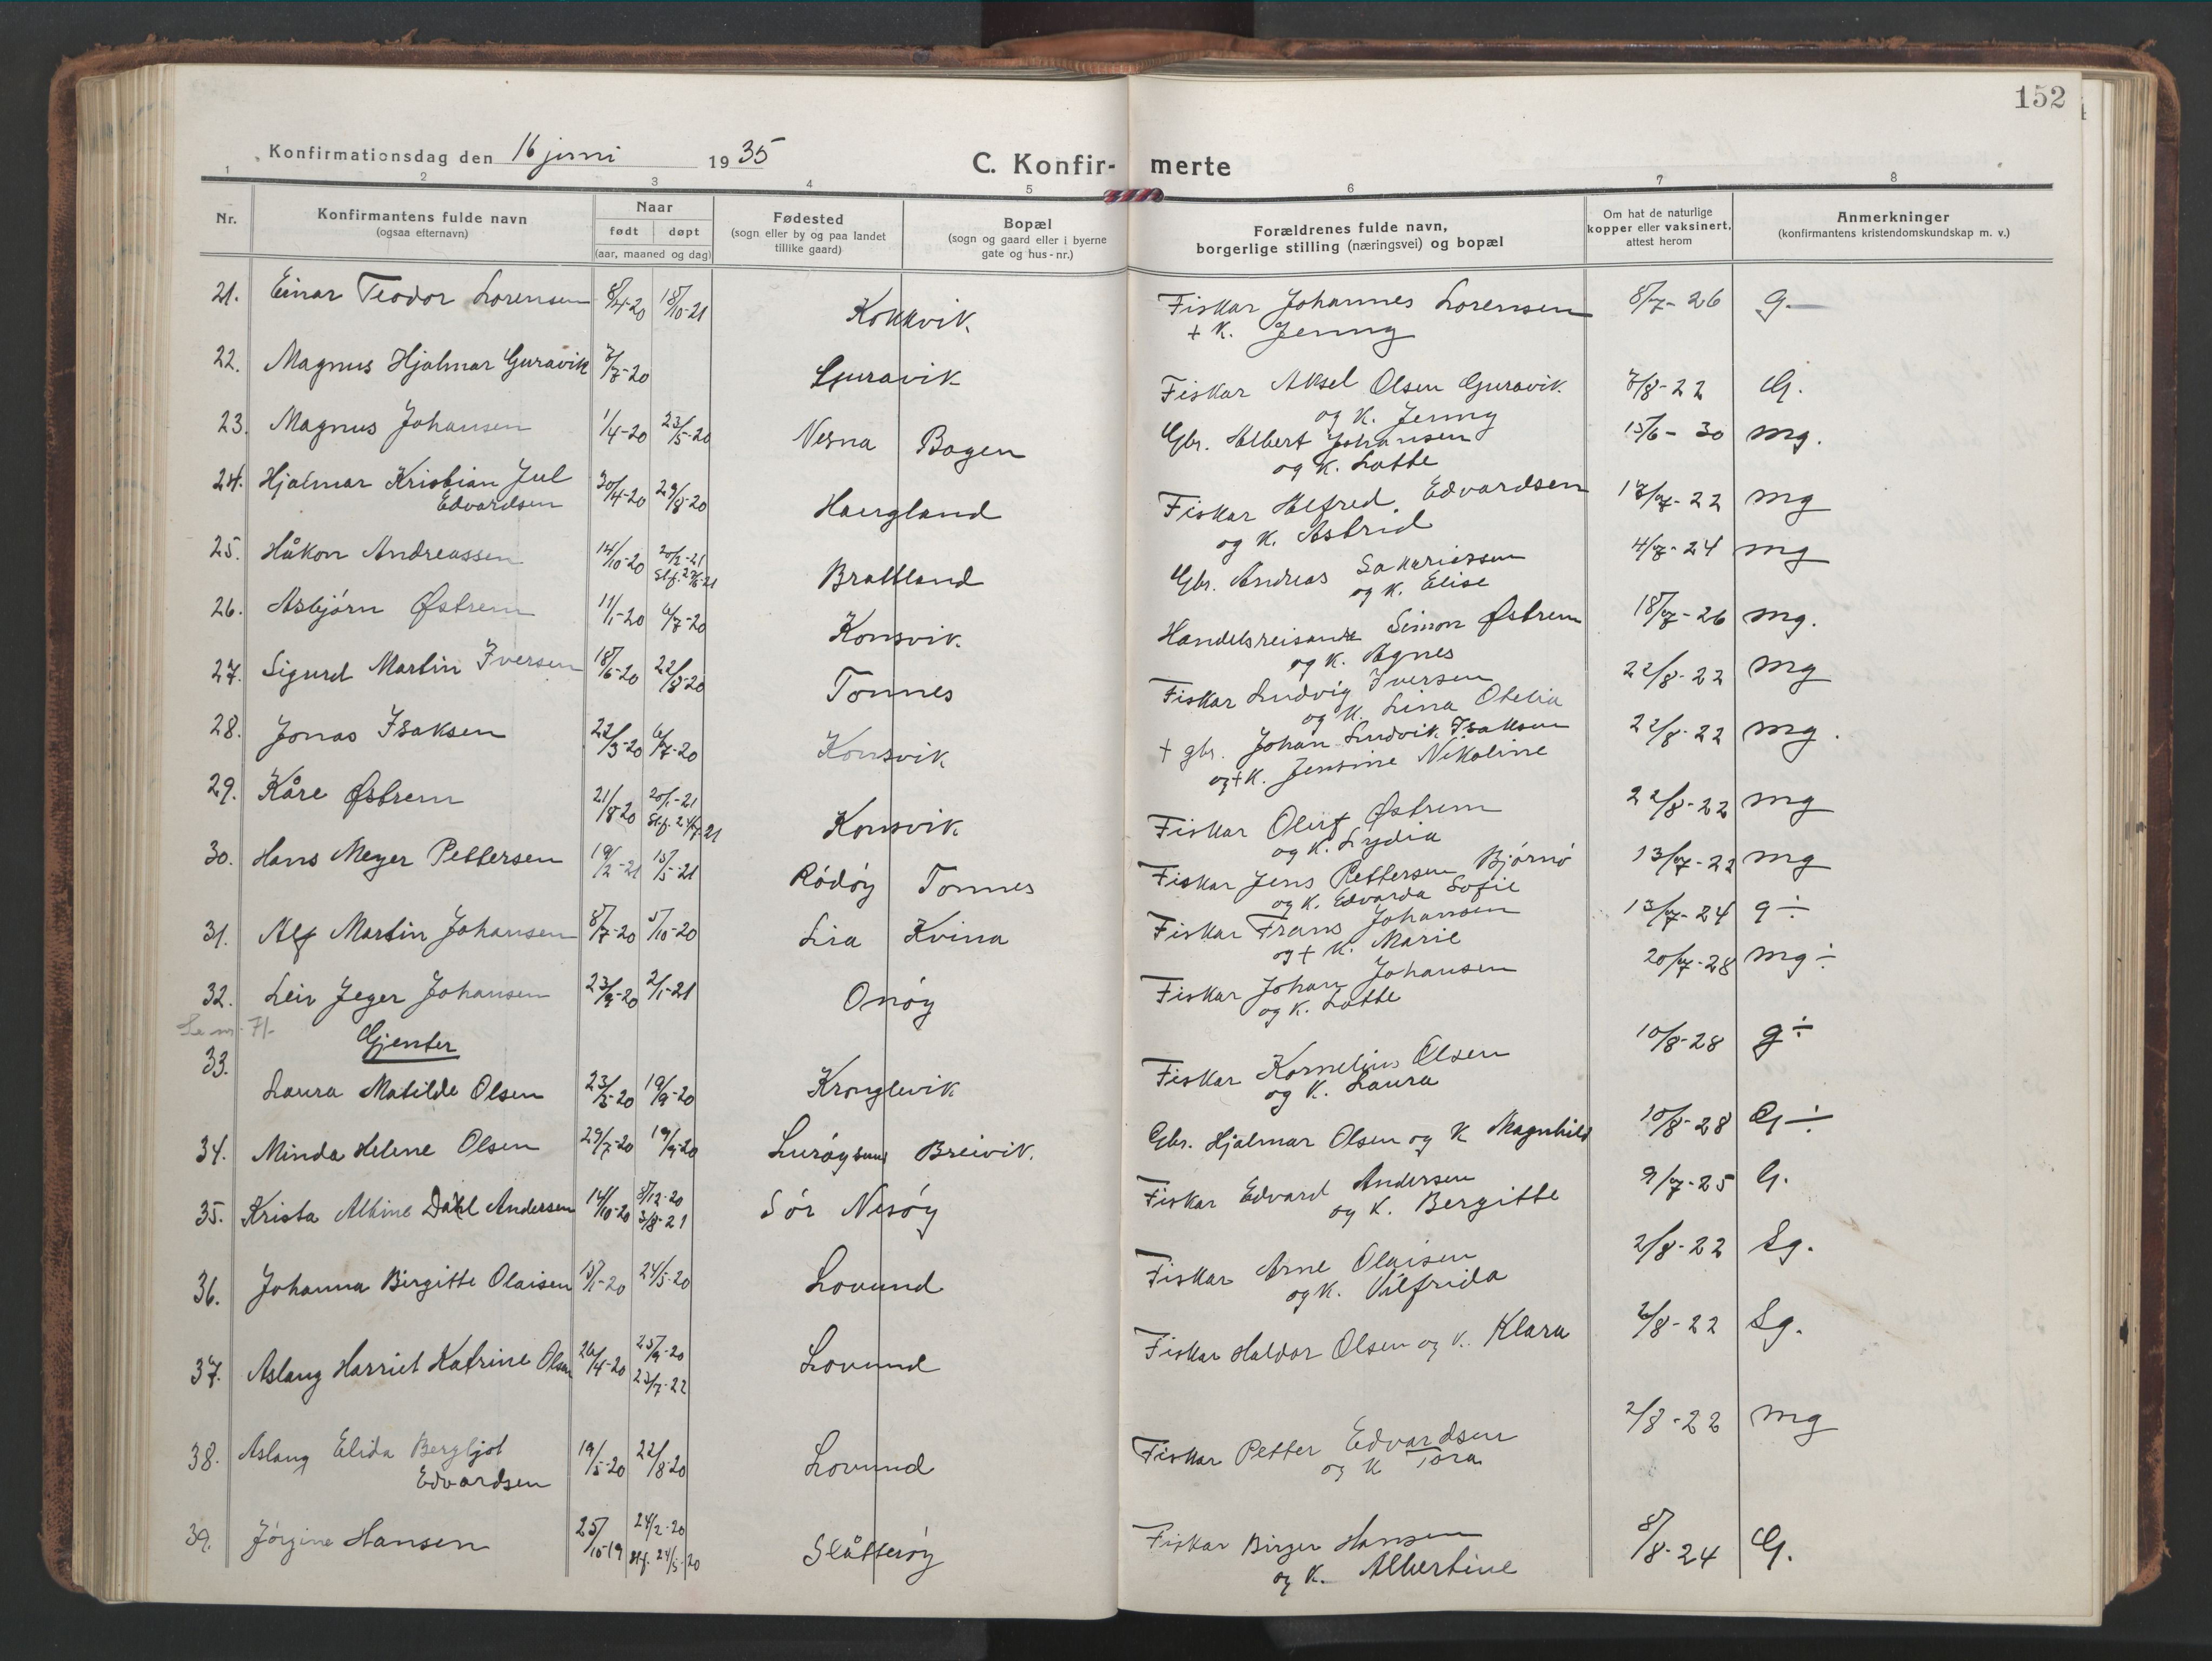 152
Konfirmationsdag den 16 juni 1935
C. Konfirmerte
1 2 3 4 5 6 7 8
Nr.
Konfirmantens fulde navn
(ogsaa efternavn)
Naar
født døpt
(aar, maaned og dag)
Fødested
(sogn eller by og paa landet
tillike gaard)
Bopæl
(sogn og gaard eller i byerne
gate og hus-nr.)
Forældrenes fulde navn,
borgerlige stilling (næringsvei) og bopæl
Om hat de naturlige
kopper eller vaksinert,
attest herom
Anmerkninger
(konfirmantens kristendomskundskap m. v.)
21. Einar Teodor Lorensen 8/4-20 18/10-21 Kokkvik. Fiskar Johannes Lorensen 8/7-26 g.
+ K. Jenny
22. Magnus Hjalmar Guravik 7/7-20 Guravik Fiskar Aksel Olsen Guravik. 7/8-22 G.
og K. Jenny
23. Magnus Johansen 1/4-20 23/5-20 Nesna Bogen Gbr. Albert Johansen 15/6-30 mg.
og K. Lotte
24. Hjalmar Kristian Jul 30/4-20 29/8-20 Haergland Fiskar Alfred Edvardsen 13/7-22 mg
Edvardsen
og K. Astrid
25. Håkon Andreassen 14/10-20 20/2-21 Brattland Gbr. Andreas Sakariassen 4/7-24 mg
og K. Elise
26. Asbjørn Østrem 11/1-20 6/7-20 Konsvik. Handelsreisande Simon Østrem 18/7-26 mg.
og K. Agnes
27. Sigurd Martin Iversen 18/6-20 22/8-20 Tonnes Fiskar Ludvig Iversen 22/8-22 mg
og K. Lina Otelia
28. Jonas Isaksen 22/3-20 6/7-20 Konsvik + gbr. Johan Ludvik Isaksen 22/8-22 mg.
og + K. Jensine Nikoline
29. Kåre Østrem 21/8-20 20/1-21 Konsvik Fiskar Oluf Østrem 22/8-22 mg
Stf. 24/7-21
og K. Lydia
30. Hans Meyer Pettersen 19/2-21 15/5-21 Rødøy Tonnes Fiskar Jens Pettersen Bjørnø 13/7-22 mg
og K. Edvarda Sofie
31. Alf Martin Johansen 8/7-20 5/10-20 Lia Kvina Fiskar Frans Johansen 13/7-24 g ÷
og + K. Marie
32. Leiv Jeger Johansen 23/9-20 2/1-21 Onøy Fiskar Johan Johansen 20/7-28 mg ÷
og K. Lotte
Se nr. 71.
Gjenter
33. Laura Matilde Olsen 23/5-20 19/9-20 Kronglevik Fiskar Kornelius Olsen 10/8-28 g ÷
og K. Laura
34. Minda Helene Olsen 29/7-20 19/9-20 Lurøysund Breivik. Gbr. Hjalmar Olsen og K Magnhild 10/8-28 G ÷
35. Krista Albine Dahl Andersen 14/10-20 8/12-20 Sør Nesøy Fiskar Edvard Andersen 9/7-25 G.
3/8-21
og K. Bergitte
36. Johanna Birgitte Olaisen 15/1-20 24/5-20 Lovund Fiskar Arne Olaisen 2/8-22 Sg.
og K. Vilfrida
37. Aslaug Harriet Katrine Olsen 26/4-20 25/9-20 Lovund Fiskar Haldor Olsen og K. Klara 2/8-22 Sg.
23/7-22
38. Aslaug Elida Bergljot 19/5-20 22/8-20 Lovund Fiskar Petter Edvardsen 2/8-22 mg
Edvardsen
og K Tora
39. Jørgine Hansen 25/10-19 24/2-20 Slåtterøy Fiskar Birger Hansen 8/8-24 G.
Stf. 24/5-20
og K. Albertine